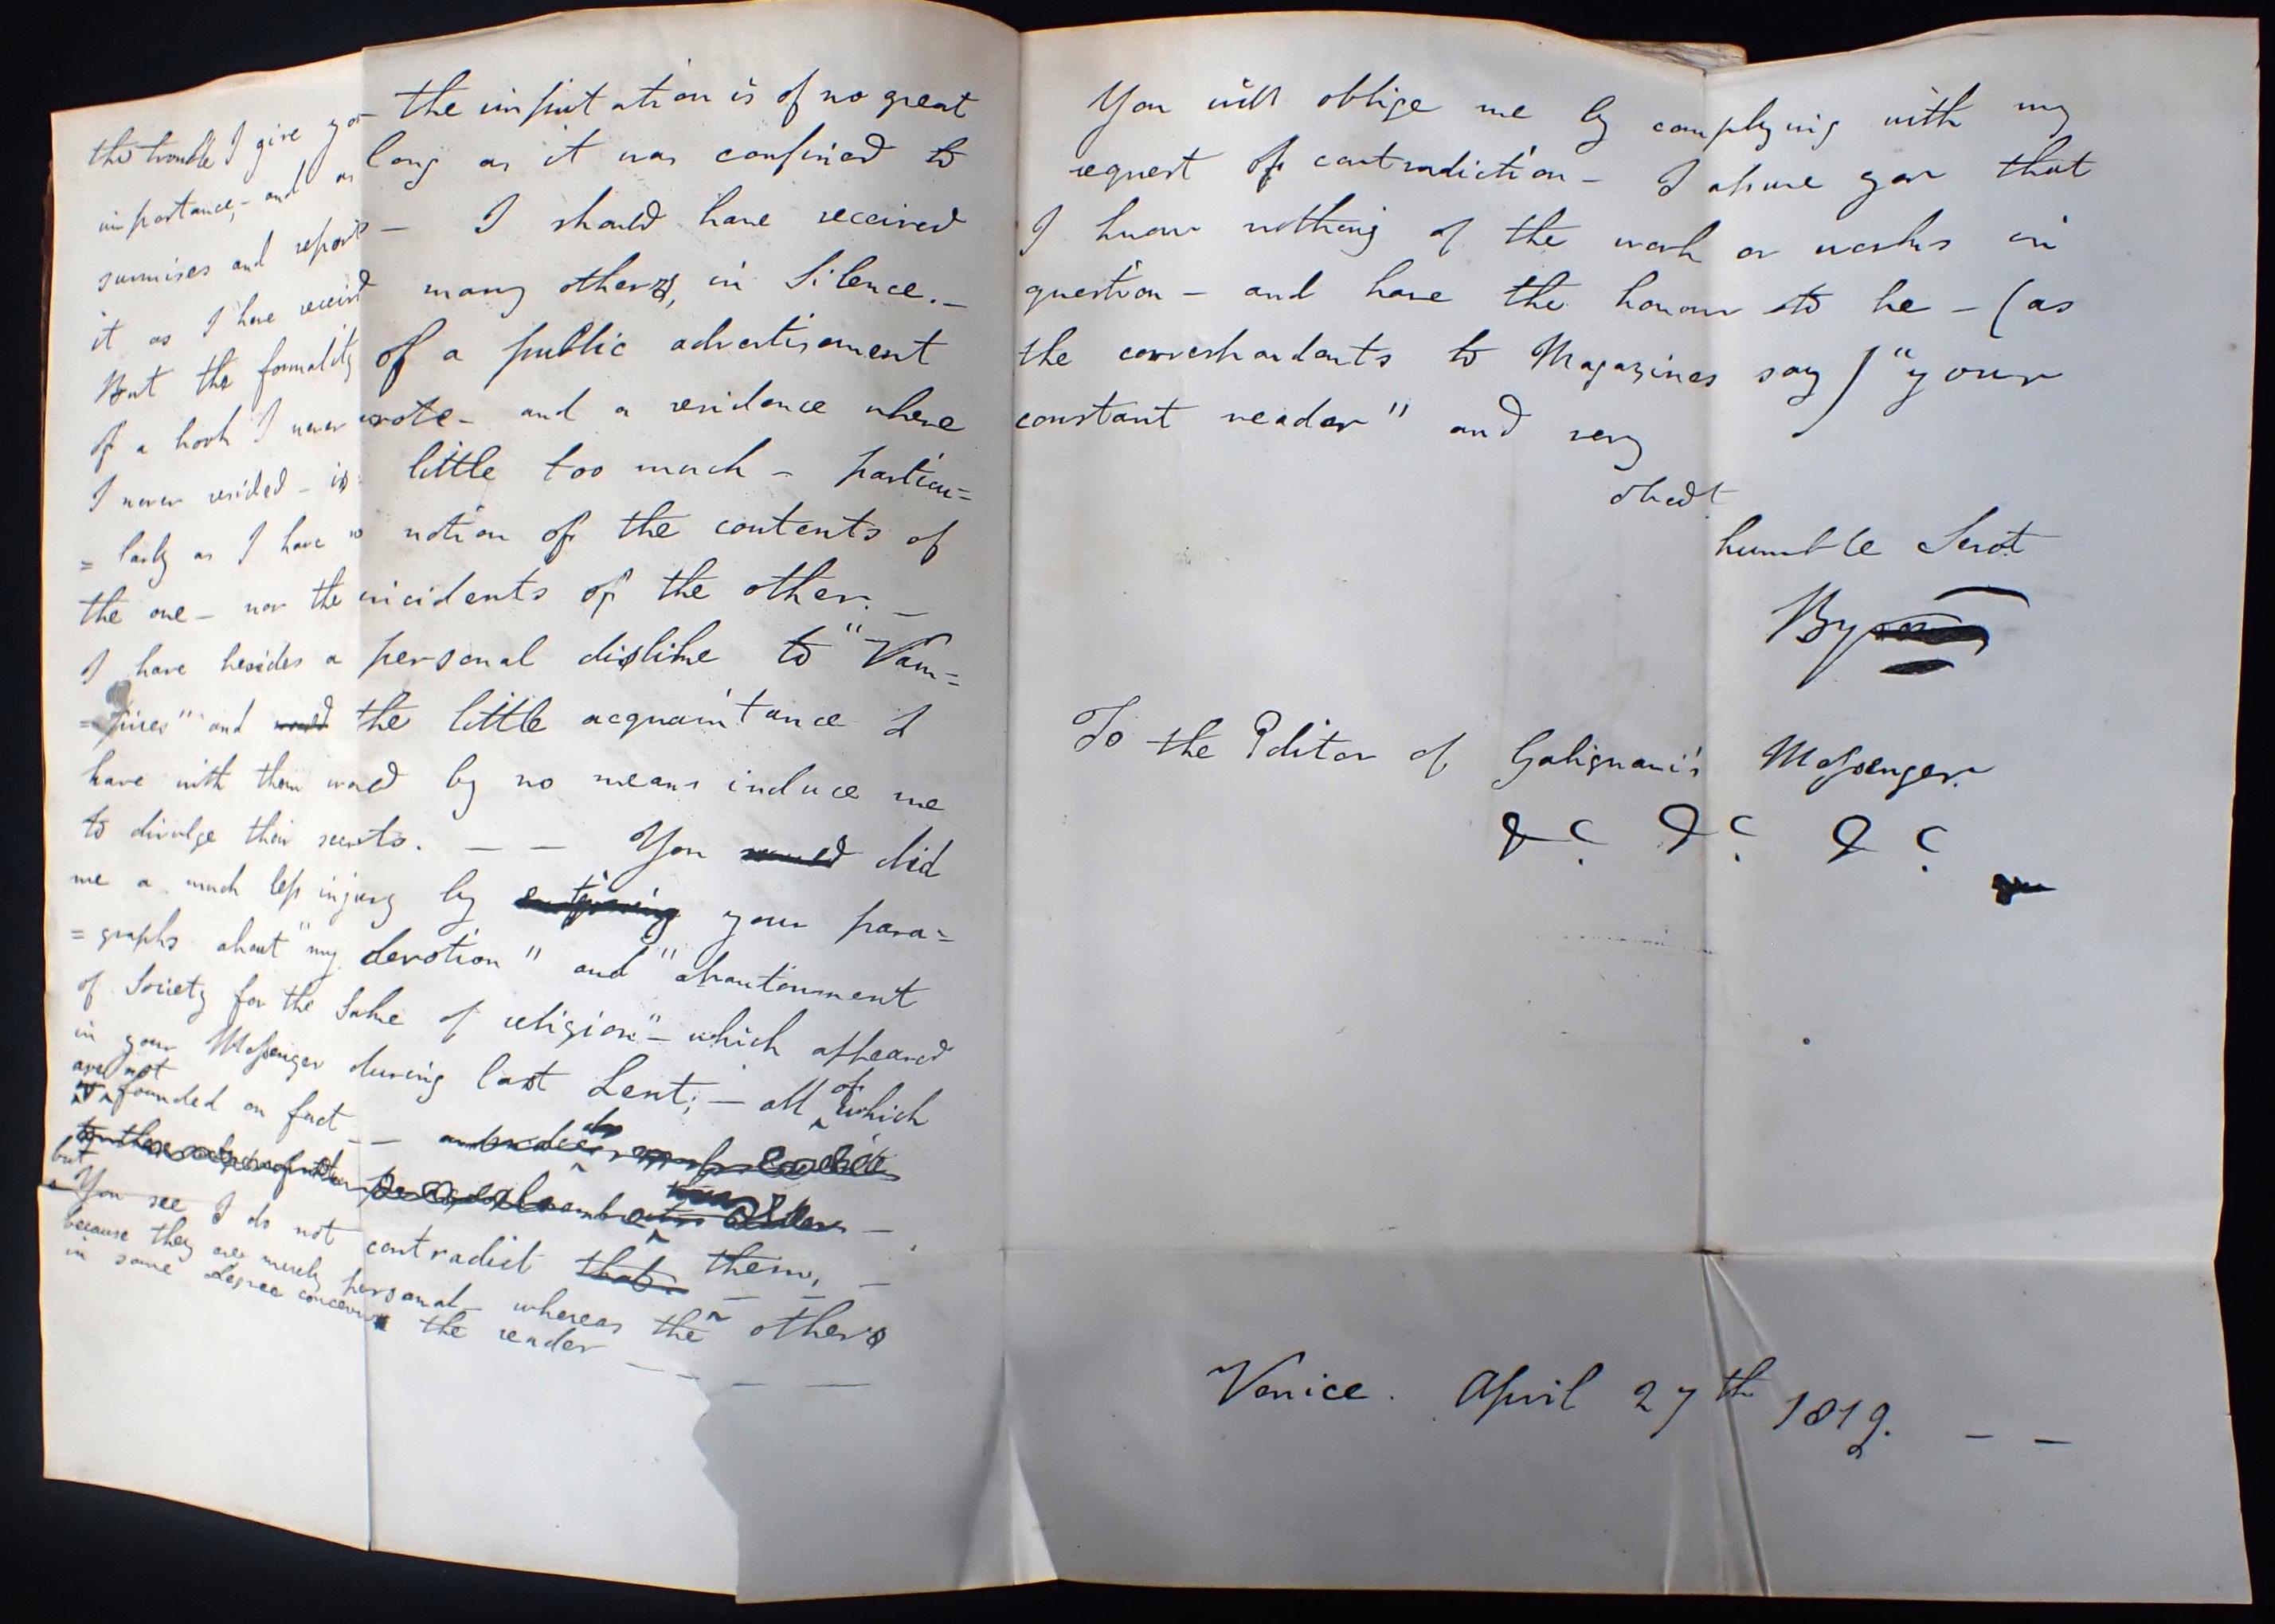 the trouble I give you – the imputation is of no great
importance, – and as long as it was confined to
surmises and reports – I should have received
it as I have received many others, in Silence. –
But the formality of a public advertisement
of a book I never wrote – and a residence where
I never resided – is a little too much – particu=
= larly as I have no notion of the contents of
the one – nor the incidents of the other. –
I have besides a personal dislike to "Vam=
=pires" and would the little acquaintance I
have with them would by no means induce me
to divulge their secrets. – – You did
me a much less injury by your para=
= graphs about "my devotion" and "abandonment
of Society for the Sake of religion" – which appeared
in your Messenger during last Lent; – all of which
are not founded on fact – –
but You see I do not contradict that them, –
because they are merely personal – whereas the others
in some degree concern the reader – – – –
You will oblige me by complying with my
request of contradiction – I assure you that
I know nothing of the work or works in
question – and have the honour to be – (as
the correspondents to Magazines say) "your
constant reader" and very
obedt
humble Servt
Byron
To the Editor of Galignani's Messenger.
&c. &c. &c.
Venice. April 27th 1819. – –